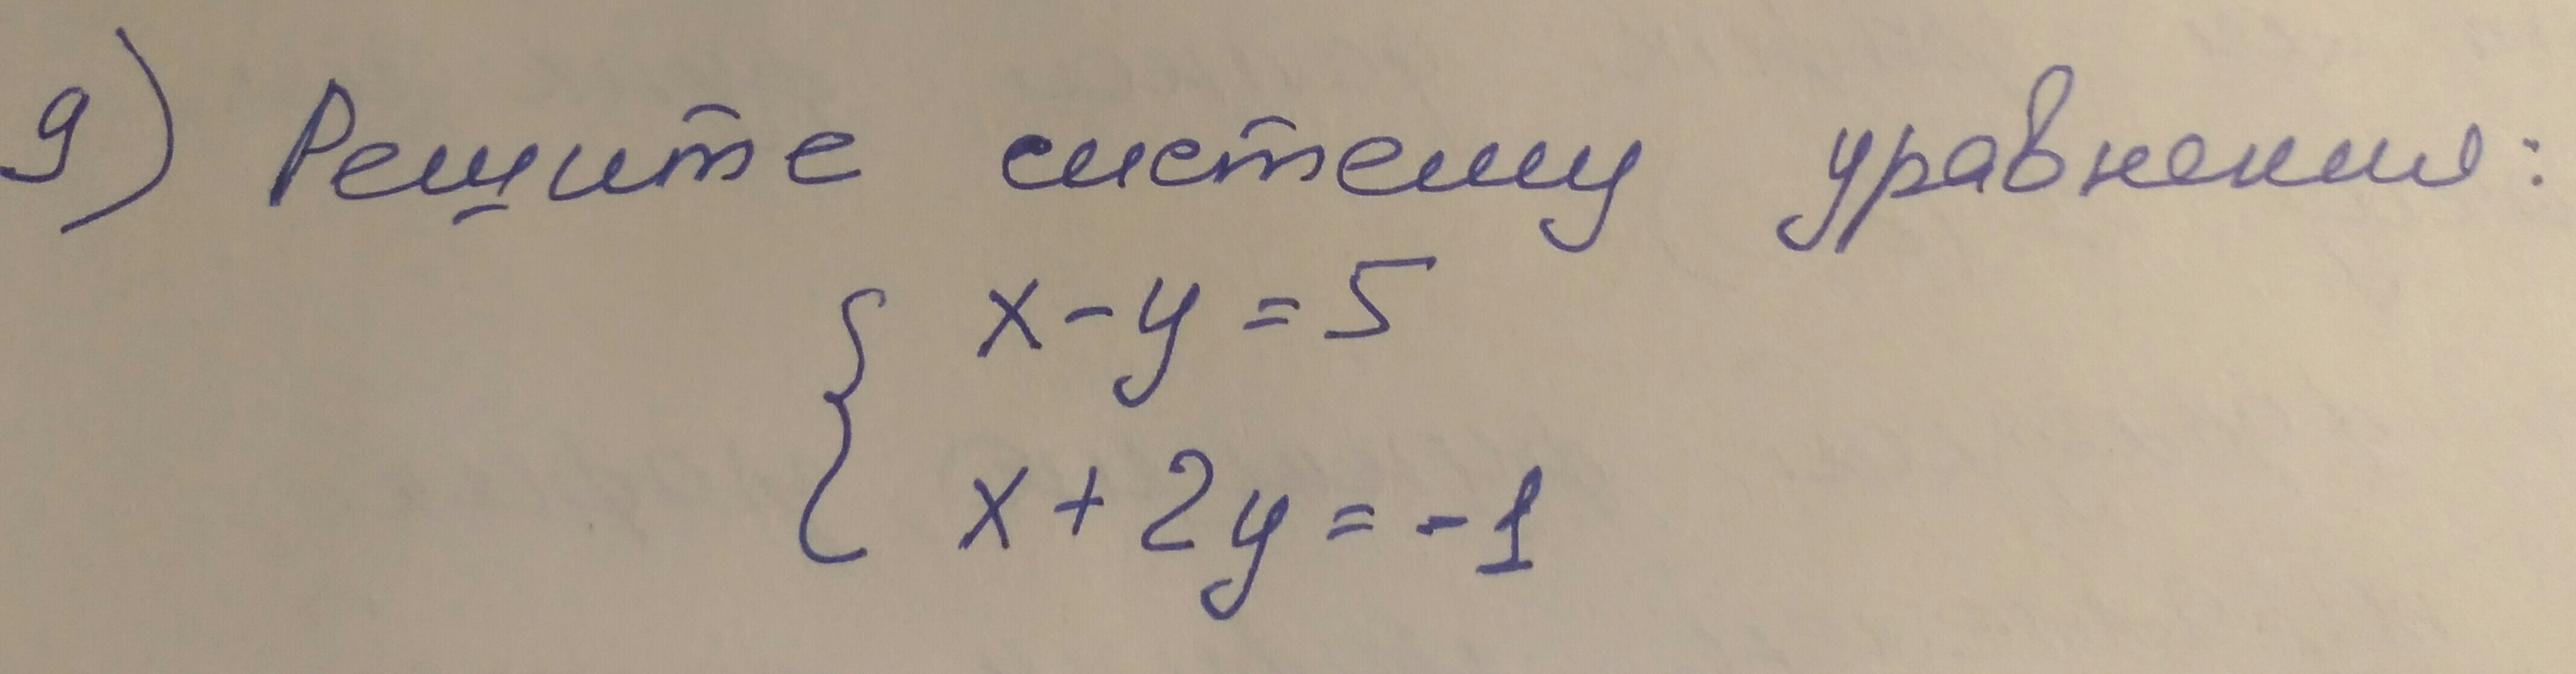 9) Решите систему уравнения:
x-y=5
x+2y=-1